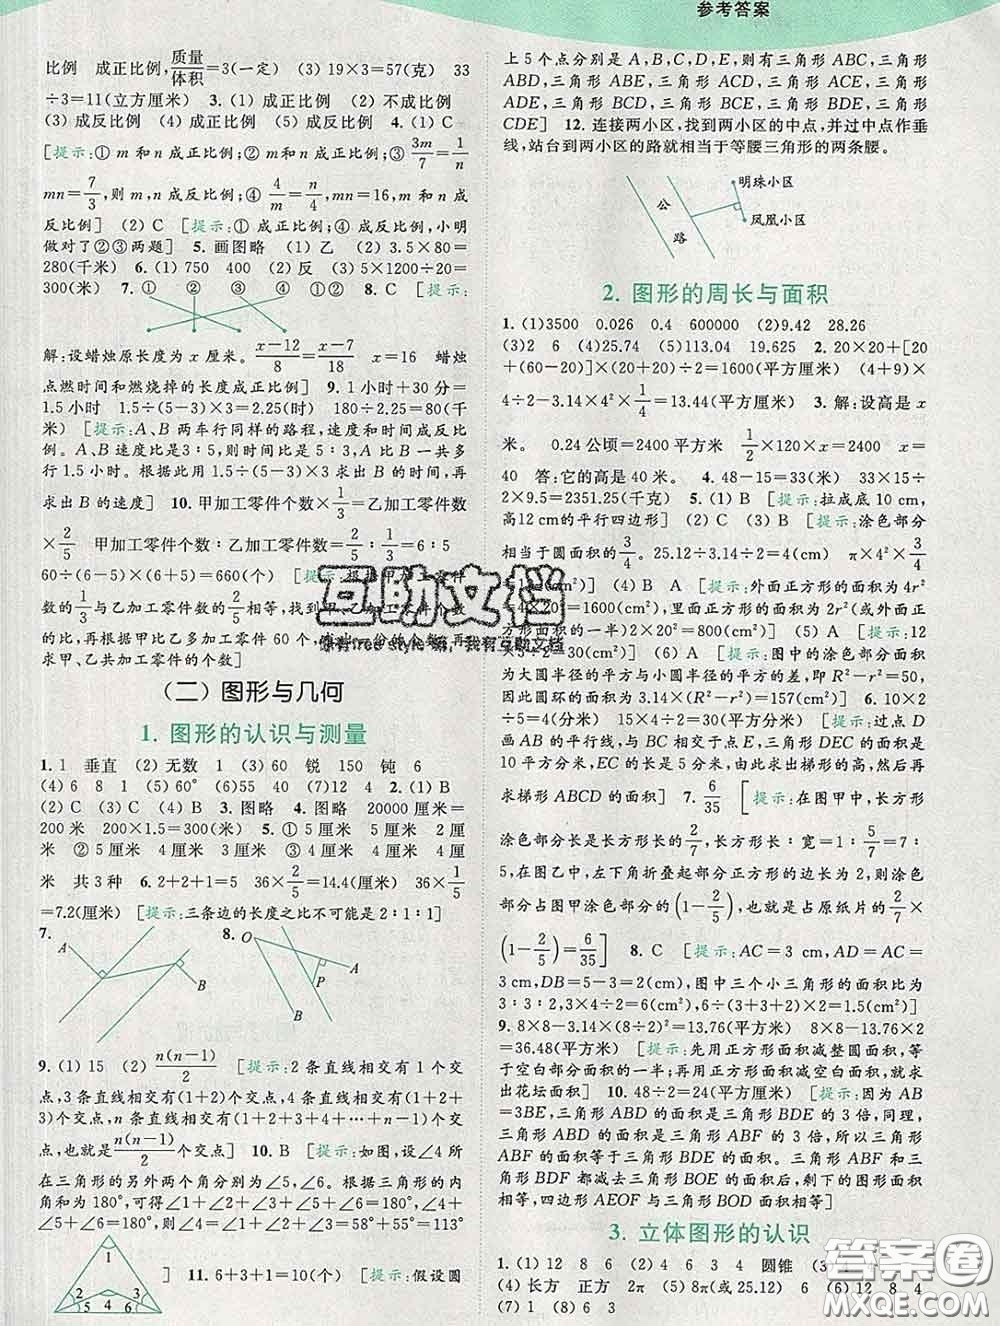 参考答案
比例 成正比例,质量/体积=3(一定) (3) 19×3=57(克) 33
÷3=11(立方厘米) 3. (1) 成正比例 (2) 不成比例
(3) 成反比例 (4) 成正比例 (5) 成反比例 4. (1) C
[提示:① m 和 n 成正比例;② m 和 n 成正比例;③ 3m/7=1/n
mn=7/3,则 m,n 成反比例;④ m/4=4/n,mn=16,m 和 n 成
反比例] (2) C [提示:① 成正比例;④ 成反比例,小明
做对了②③两题] 5. 画图略 (1) 乙 (2) 3.5×80=
280(千米) 6. (1) 750 400 (2) 反 (3) 5×1200÷20=
300(米) 7. ① ② ③ ④ 8. C [提示:
解:设蜡烛原长度为 x 厘米。(x-12)/8=(x-7)/18 x=16 蜡烛
点燃时间和燃烧掉的长度成正比例] 9. 1 小时+30 分=
1.5 小时 1.5÷(5-3)×3=2.25(时) 180÷2.25=80(千
米) [提示:A、B 两车行同样的路程,速度和时间成反比
例。A、B 速度比是3∶5,则时间比是 5∶3,A 比 B 一共多
行 1.5 小时。根据此用 1.5÷(5-3)×3 求出 B 的时间,再
求出 B 的速度] 10. 甲加工零件个数×1/3=乙加工零件个数
×2/5 甲加工零件个数∶乙加工零件个数=2/5∶1/3=6∶5
60÷(6-5)×(6+5)=660(个) [提示:根据甲加工零件个
数的1/3与乙加工零件个数的2/5相等,找到甲、乙加工零件个数
的比,再根据甲比乙多加工零件 60 个,
求甲、乙共加工零件的个数]
(二) 图形与几何
1. 图形的认识与测量
1. 1 垂直 (2) 无数 1 (3) 60 锐 150 钝 6
(4) 6 8 1 (5) 60° (6)55 40 (7)12 4 2. (1) B
(2) C (3) C (4) B 3. 图略 4. 图略 20000 厘米=
200 米 200×1.5=300(米) 5. ① 5 厘米 5 厘米 2 厘
米 ② 5 厘米 4 厘米 3 厘米 ③ 4 厘米 4 厘米 4 厘
米 共 3 种 6. 2+2+1=5 36×2/5=14.4(厘米) 36×1/5
=7.2(厘米) [提示:三条边的长度之比不可能是 2∶1∶1]
7. A B 8. O A P B
9. (1) 15 (2) n(n-1)/2 [提示:2 条直线相交有 1 个交
点,3 条直线相交有(1+2)个交点,4 条直线相交有(1+2+
3)个交点,n 条直线相交有(1+2+3+4+…+n-1)个交
点,也就是n(n-1)/2个交点] 10. B [提示:如图,设∠4所
在三角形的另外两个角分别为∠5,∠6。根据三角形的内
角和为 180°,可得∠1+∠2+∠3+∠4+∠5+∠6=180°,
∠4+∠5+∠6=180°,则∠1+∠2+∠3=58°+55°=113°
1 2 3 5 4 6
] 11. 6+3+1=10(个) [提示:假设圆
上 5 个点分别是 A,B,C,D,E,则有三角形 ABC,三角形
ABD,三角形 ABE,三角形 ACD,三角形 ACE,三角形
ADE,三角形 BCD,三角形 BCE,三角形 BDE,三角形
CDE] 12. 连接两小区,找到两小区的中点,并过中点作垂
线,站台到两小区的路就相当于等腰三角形的两条腰。
公 路 明珠小区 凤凰小区
2. 图形的周长与面积
1. (1)3500 0.026 0.4 600000 (2)9.42 28.26
(3)2 6 (4)25.74 (5)113.04 19.625 2. 20×20+[20
+(60-20)]×(20+20)÷2=1600(平方厘米) (4+9)×
4÷2-3.14×4²×1/4=13.44(平方厘米) 3. 解:设高是 x
米。 0.24 公顷=2400 平方米 1/2×120×x=2400 x=
40 答:它的高是 40 米。 4. 48-15=33(米) 33×15÷
2×9.5=2351.25(千克) 5. (1) B [提示:拉成底 10 cm,
高12 cm的平行四边形] (2) C (3) B [提示:涂色部分
相当于圆面积的3/4。25.12÷3.14÷2=4(cm) π×4²×3/4
(cm²)] (4) B A [提示:外面正方形的面积为 4r²
=4×20=1600(cm²),里面正方形面积为 2r²(或外面正
方形面积的一半) 2×20²=800(cm²)] (5) A [提示:12
×5÷2=30(cm²)] (6) B [提示:图中的涂色部分面积
为大圆半径的平方与小圆半径的平方的差,即 R²-r²=50,
因此圆环的面积为 3.14×(R²-r²)=157(cm²)] 6. 10×2
÷5=4(分米) 15×4÷2=30(平方分米) [提示:过点 D
画 AB 的平行线,与 BC 相交于一点 E,三角形 DEC 的面积是
10 平方分米,EC 的长是 5 分米,由此求出梯形的高,然后再
求梯形 ABCD 的面积] 7. 6/35 [提示:在图甲中,长方形
涂色部分长是长方形长的2/7,长方形长∶宽=1∶5/7=7∶
5,在图乙中,左下角折叠起部分正方形的边长为 2,则涂色
部分占图甲涂色部分的(1-2/5),也就是占原纸片的2/7×
(1-2/5)=6/35] 8. C [提示:AC=3 cm,AD=AC=
3 cm,DB=5-3=2(cm),图中三个小三角形的面积比为
3∶3∶2,3×4÷2=6(cm²),6÷(3+3+2)×2=1.5(cm²)]
9. 8×8-3.14×(8÷2)²=13.76(平方米) 8×8-13.76×2
=36.48(平方米) [提示:先用正方形面积减整圆面积,等
于空白部分面积的一半;再用正方形面积减去空白面积,就
求出花坛面积] 10. 48÷2=24(平方厘米) [提示:因为 AB
=3BE,三角形 ABD 的面积是三角形 BDE 的 3 倍,同理,
三角形 ABD 的面积是三角形 ABF 的 3 倍,所以三角形
ABF 的面积等于三角形 BDE 的面积。三角形 ABF 和三
角形 BDF 都减去三角形 BOE 的面积后,剩下的图形面积
相等,四边形 AEOF 与三角形 BOD 面积相等]
3. 立体图形的认识
1. (1) 12 8 6 (2) 4 6 3 4 圆锥 (3)
(4) 长方 正方 2π (5) 8π(或 25.12) 6 (6) 12 8 4
(7) 1 (8) 6 3
互助文档
你有free style 嘛,我有互助文档
答案圈
MXQE.COM